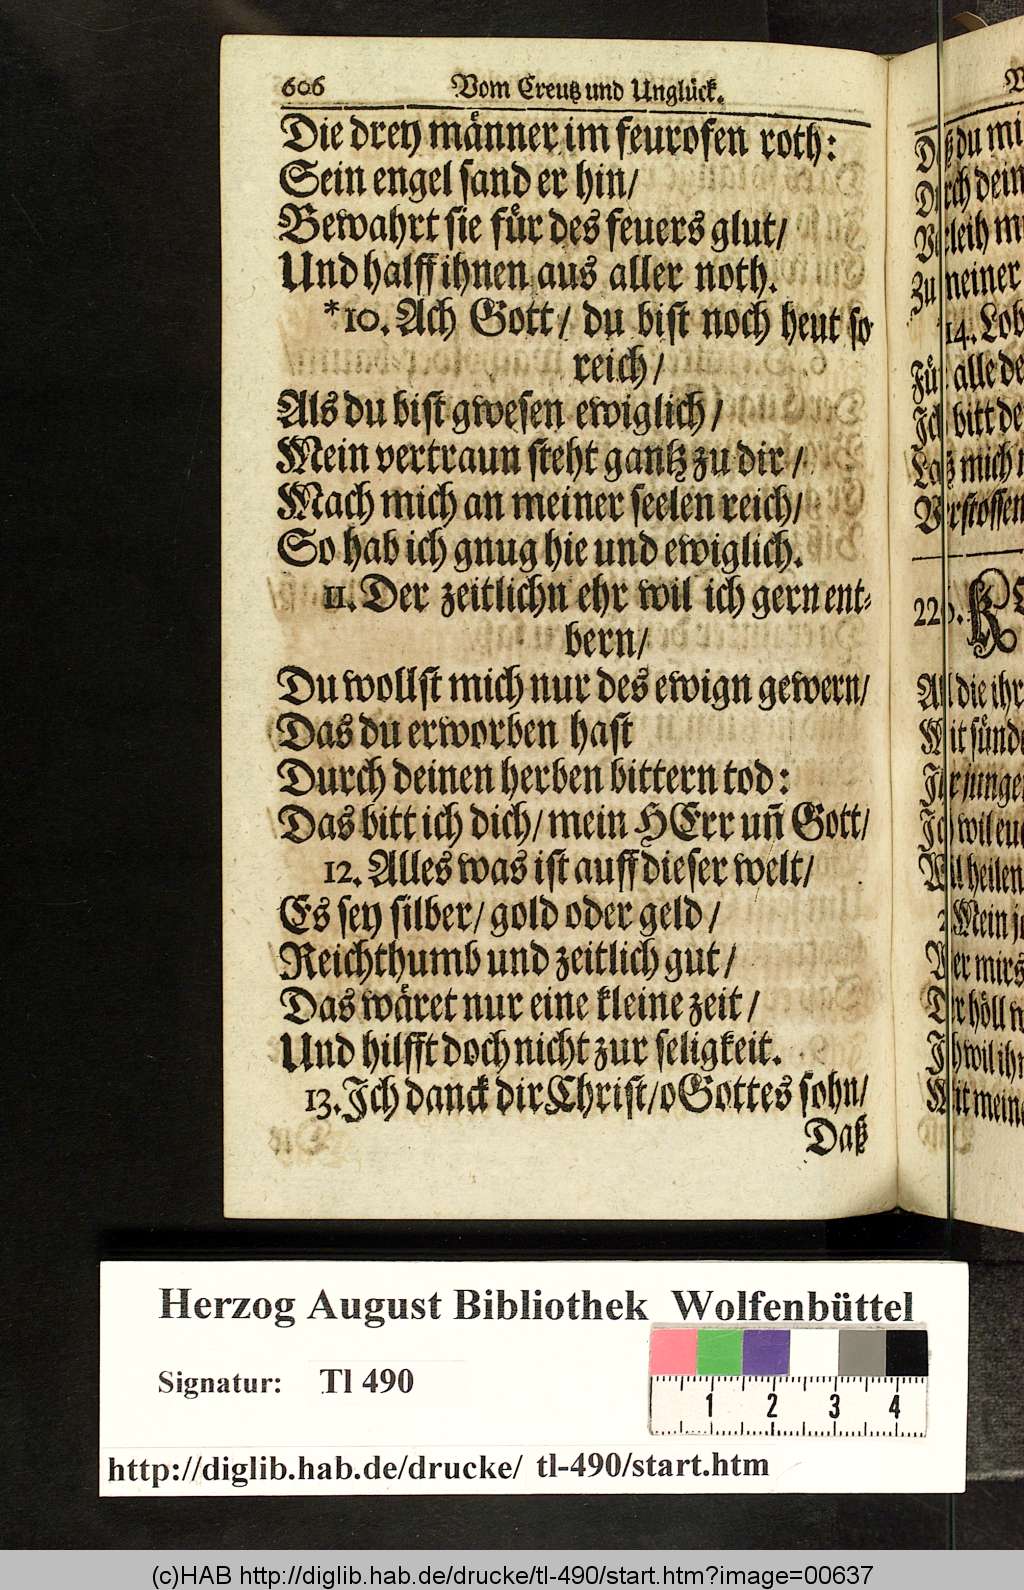 606 Vom Creutz und Unglück.
Die drey männer im feurofen roth:
Sein engel sand er hin/
Bewahrt sie für des feuers glut/
Und halff ihnen aus aller noth.
*10. Ach Gott/ du bist noch heut so
reich/
Als du bist gwesen ewiglich/
Mein vertraun steht gantz zu dir/
Mach mich an meiner seelen reich/
So hab ich gnug hie und ewiglich.
11. Der zeitlichn ehr wil ich gern ent-
bern/
Du wollst mich nur des ewign gewern/
Das du erworben hast
Durch deinen herben bittern tod:
Das bitt ich dich/ mein HErr uñ Gott/
12. Alles was ist auff dieser welt/
Es sey silber/ gold oder geld/
Reichthumb und zeitlich gut/
Das wäret nur eine kleine zeit/
Und hilfft doch nicht zur seligkeit.
13. Ich danck dir Christ/ o Gottes sohn/
Daß
du mi
dein
meiner
14. Lob
alle de
bitt de
mich
die ihr
wil
heilen
Mein
höll
wil
Herzog August Bibliothek Wolfenbüttel
Signatur: Tl 490
1 2 3 4
http://diglib.hab.de/drucke/ tl-490/start.htm
(c)HAB http://diglib.hab.de/drucke/tl-490/start.htm?image=00637